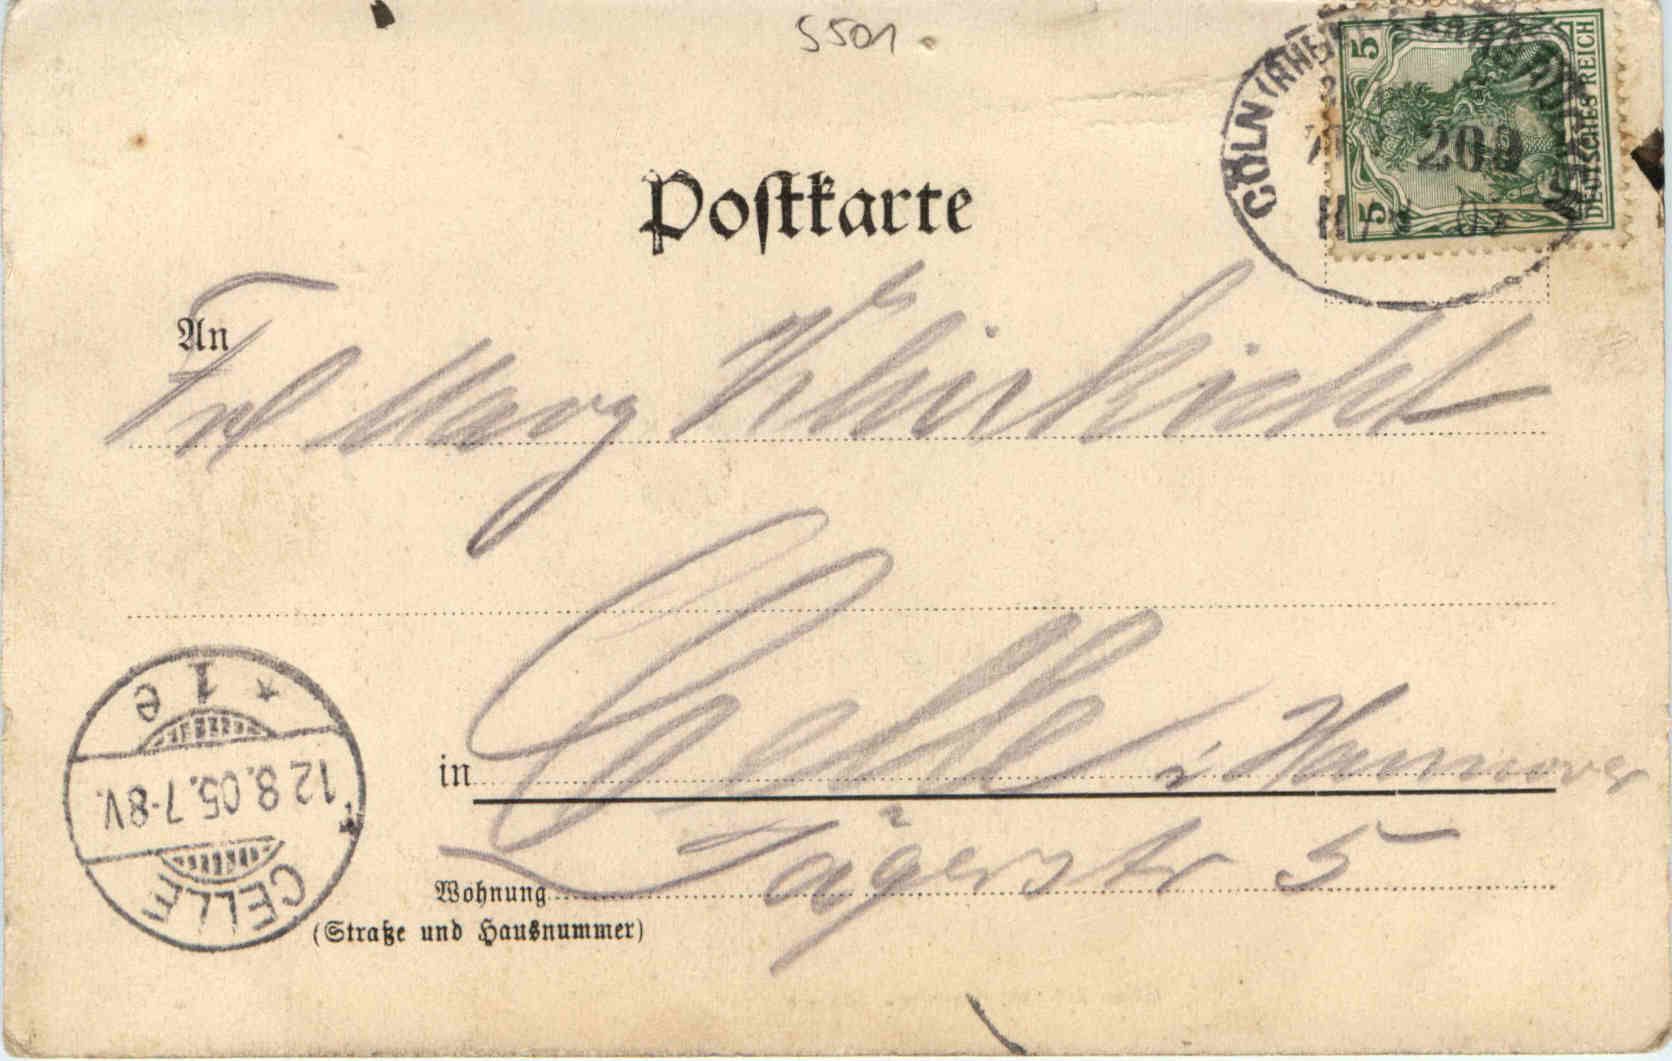 5501
CÖLN (RHEIN
5
DEUTSCHES REICH
5
209
Postkarte
An
Frl Marg Kleinknecht
Celle i Hannover
in
Jägerstr 5
Wohnung
(Straße und Hausnummer)
CELLE
12.8.05.7-8V.
* 1 e